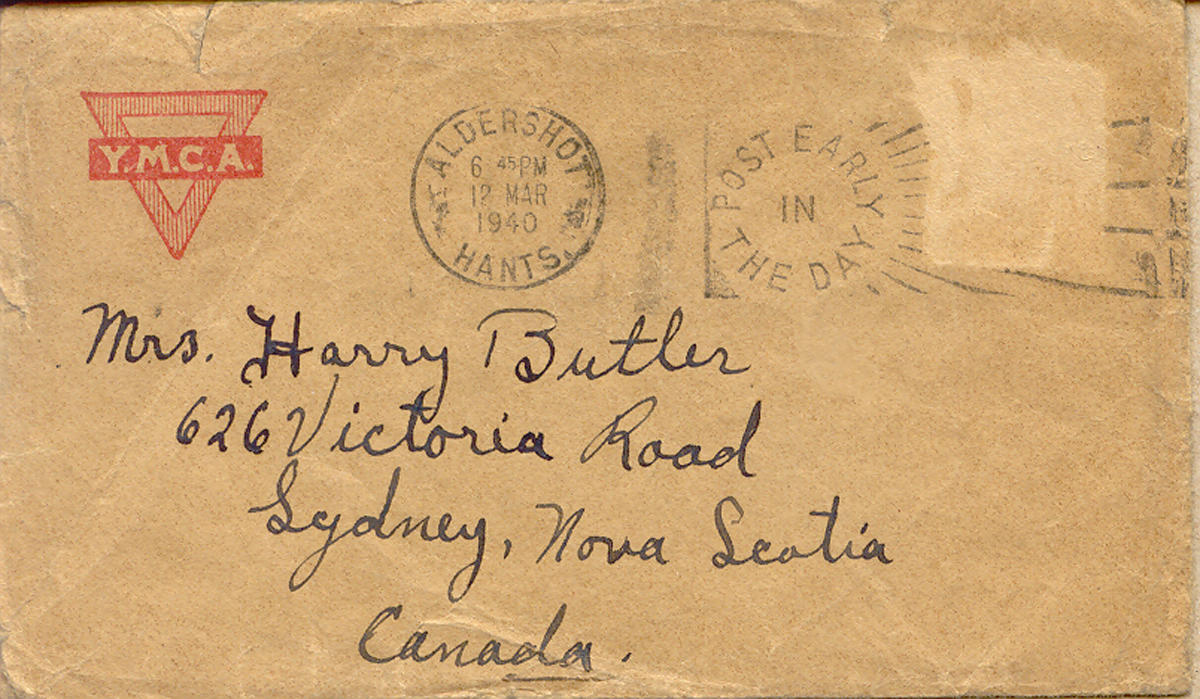 Y.M.C.A.
ALDERSHOT
6 45PM
12 MAR
1940
HANTS.
POST EARLY
IN
THE DAY
Mrs. Harry Butler
626 Victoria Road
Sydney, Nova Scotia
Canada.